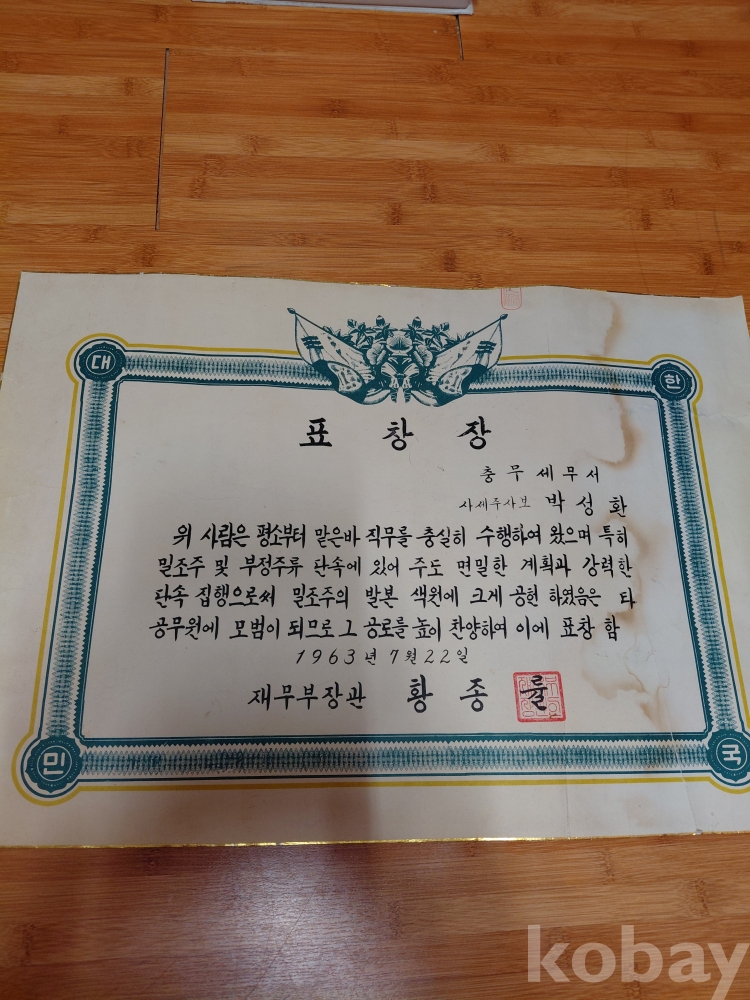 대 한
표 창 장
충무세무서
사세주사보 박성환
위 사람은 평소부터 맡은바 직무를 충실히 수행하여 왔으며 특히
밀조주 및 부정주류 단속에 있어 주도 면밀한 계획과 강력한
단속 집행으로써 밀조주의 발본 색원에 크게 공헌 하였음은 타
공무원에 모범이 되므로 그 공로를 높이 찬양하여 이에 표창 함
1963년 7월 22일
재무부장관 황 종 률
민 국
kobay